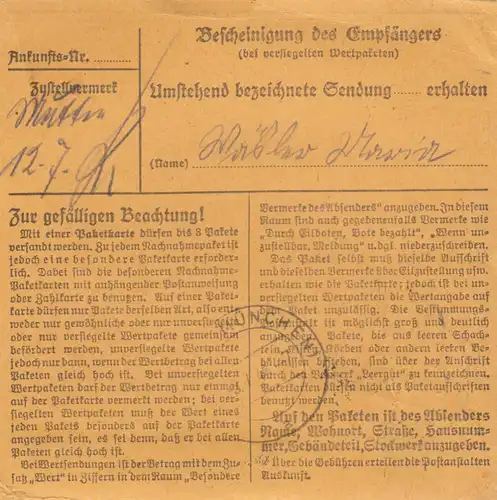 Ankunfts-Nr. ............
Bescheinigung des Empfängers
(bei versiegelten Wertpaketen)
Zustellvermerk
Mutter
12. 7.
Umstehend bezeichnete Sendung ...... erhalten
(Name) Maria
Zur gefälligen Beachtung!
Mit einer Paketkarte dürfen bis 3 Pakete
versandt werden. Zu jedem Nachnahmepaket ist
jedoch eine besondere Paketkarte erforder-
lich. Dabei sind die besonderen Nachnahme-
Paketkarten mit anhängender Postanweisung
oder Zahlkarte zu benutzen. Auf einer Paket-
karte dürfen nur Pakete derselben Art, also ent-
weder nur gewöhnliche oder nur unversiegelte
oder nur versiegelte Wertpakete gemeinsam
befördert werden, unversiegelte Wertpakete
jedoch nur dann, wenn der Wertbetrag bei allen
Paketen gleich hoch ist. Bei unversiegelten
Wertpaketen darf der Wertbetrag nur einmal
auf der Paketkarte vermerkt werden; bei ver-
siegelten Wertpaketen muß der Wert eines
jeden Pakets besonders auf der Paketkarte
angegeben sein, es sei denn, daß er bei allen
Paketen gleich hoch ist.
Bei Wertsendungen ist der Betrag mit dem Zu-
satz „Wert" in Ziffern in dem Raum „Besondere
Vermerke des Absenders" anzugeben. In diesem
Raum sind auch gegebenenfalls Vermerke wie
„Durch Eilboten, Bote bezahlt", „Wenn un-
zustellbar, Meldung" u. dgl. niederzuschreiben.
Das Paket selbst muß dieselbe Aufschrift
und dieselben Vermerke über Eilzustellung usw.
erhalten wie die Paketkarte; jedoch ist bei un-
versiegelten Wertpaketen die Wertangabe auf
dem Paket unzulässig. Die Bestimmungs-
ist möglichst groß und deutlich
Pakete, die aus leeren Schach-
Körben oder andern leeren Be-
sind über der Anschrift
„Leergut" zu kennzeichnen.
Paketkarten nicht als Paketaufschriften
benutzt werden.
Auf den Paketen ist des Absenders
Name, Wohnort, Straße, Hausnum-
mer, Gebäudeteil, Stockwerk anzugeben.
Über die Gebühren erteilen die Postanstalten
Auskunft.
MÜNCHEN